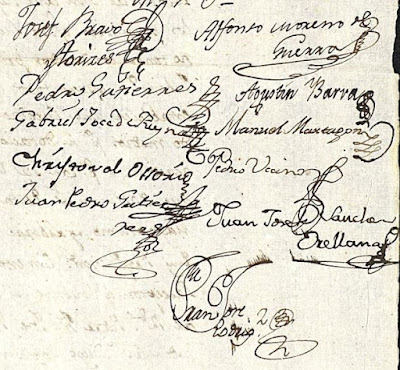 Josef Bravo
Alfonso Moreno de
Guerra
Pedro Gutierres
Agustin Barra
Gabriel Jose de Reyna
Manuel Marragon
Christoval Ossorio
Pedro
Juan Pedro Gutier
rez
Juan Jose
Orellana
Juan Jose
Rodrig